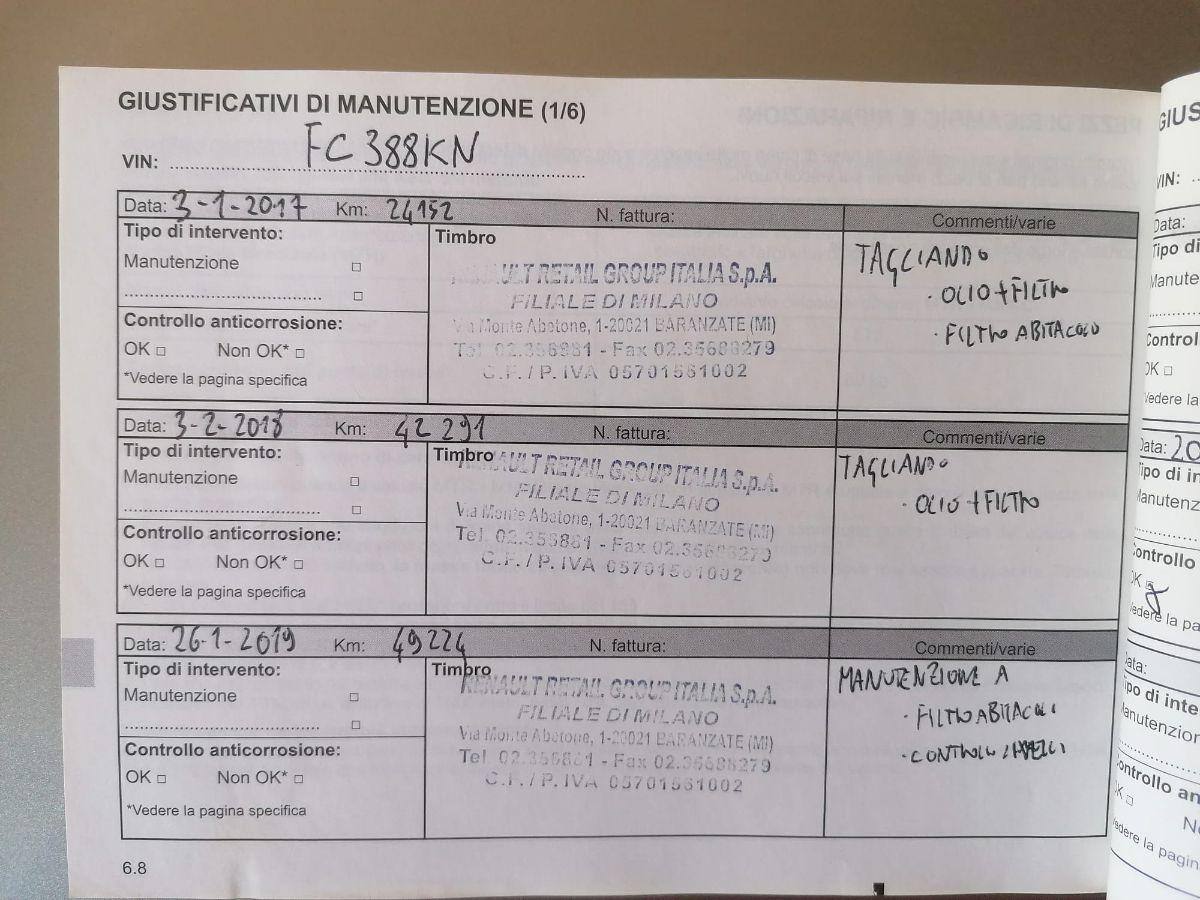 GIUSTIFICATIVI DI MANUTENZIONE (1/6)
VIN: FC388KN
Data: 3-1-2017 Km: 24152 N. fattura: Commenti/varie
Tipo di intervento: Timbro
Manutenzione
Controllo anticorrosione:
OK Non OK*
*Vedere la pagina specifica
RENAULT RETAIL GROUP ITALIA S.p.A.
FILIALE DI MILANO
Via Monte Abetone, 1-20021 BARANZATE (MI)
Tel 02.356981 - Fax 02.35688279
C.F. / P. IVA 05701561002
TAGLIANDO
· OLIO + FILTRO
· FILTRO ABITACOLO
Data: 3-2-2018 Km: 42 291 N. fattura: Commenti/varie
Tipo di intervento: Timbro
Manutenzione
Controllo anticorrosione:
OK Non OK*
*Vedere la pagina specifica
RENAULT RETAIL GROUP ITALIA S.p.A.
FILIALE DI MILANO
Via Monte Abetone, 1-20021 BARANZATE (MI)
Fax 02.35688279
C.F. / P. IVA 05701561002
TAGLIANDO
· OLIO + FILTRO
Data: 26-1-2019 Km: 49224 N. fattura: Commenti/varie
Tipo di intervento: Timbro
Manutenzione
Controllo anticorrosione:
OK Non OK*
*Vedere la pagina specifica
RENAULT RETAIL GROUP ITALIA S.p.A.
FILIALE DI MILANO
Via Monte Abetone, 1-20021 BARANZATE (MI)
Fax 02.35688279
C.F. / P. IVA 05701561002
MANUTENZIONE A
· FILTRO ABITACOLI
· CONTROLLI
6.8
GIUS
VIN:
Data:
Tipo di
Manute
Control
OK
Vedere la
Data: 20
Tipo di in
Manutenz
Controllo
OK
Vedere la pa
Data:
Tipo di inte
Manutenzior
Controllo an
OK
No
Vedere la pagin